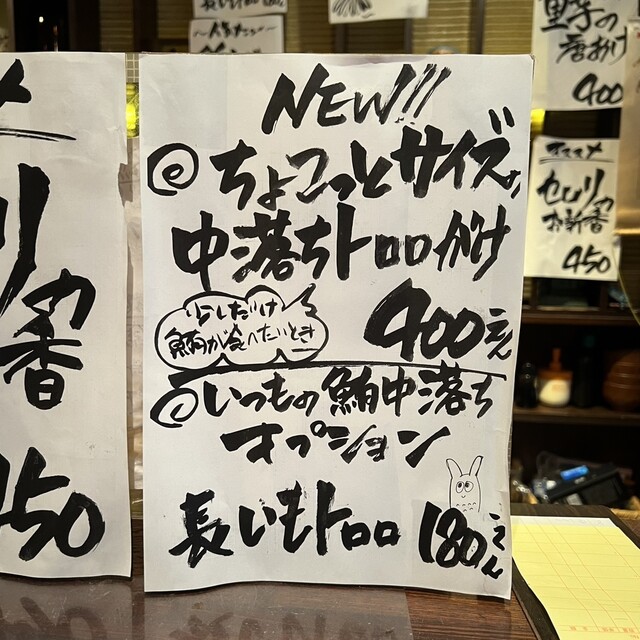 NEW!!!
ちょこっとサイズ
中落ちトロロがけ
少しだけ
鮪が食べたいとき
900えん
いつもの鮪中落ち
オプション
長いもトロロ 180えん
香
450
里芋の
唐あげ
900
オススメ
セロリの
お新香
450